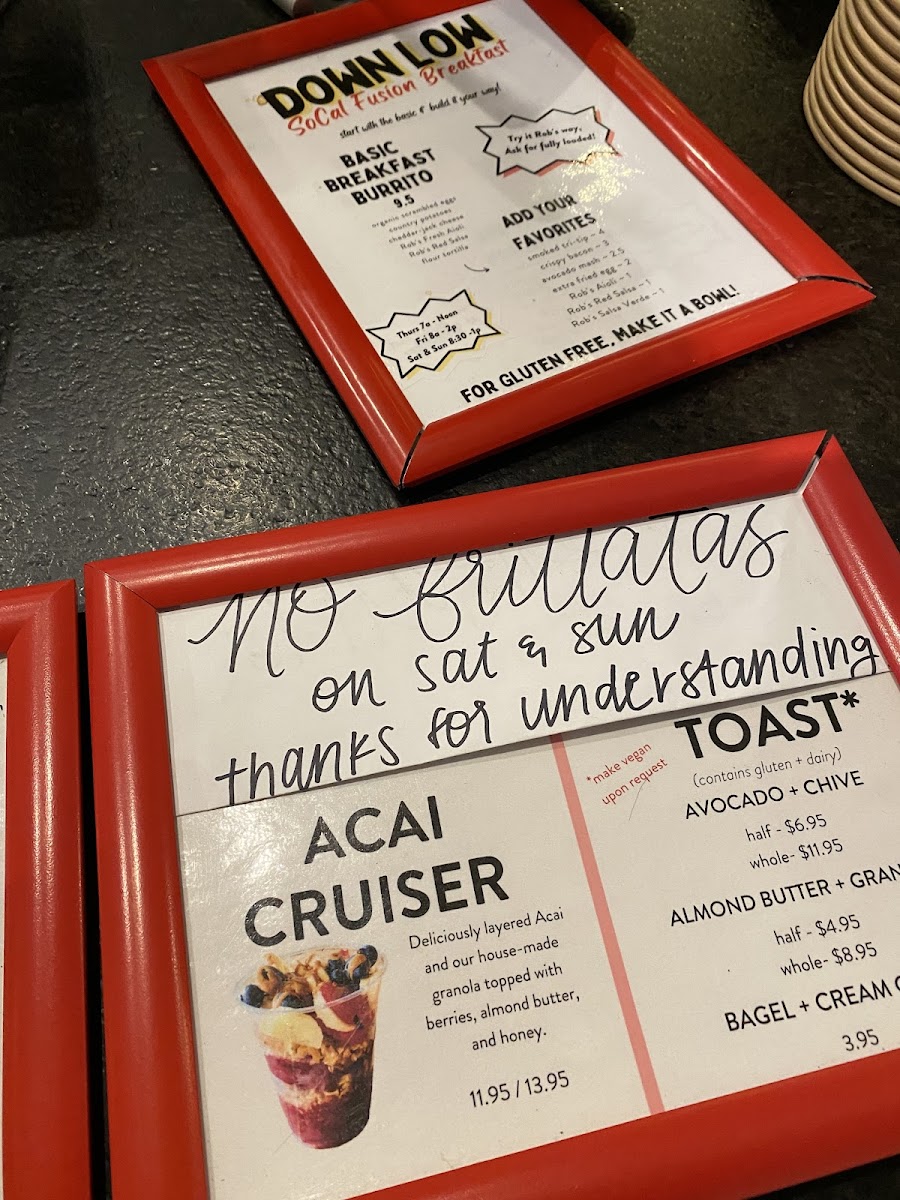 DOWN LOW
SoCal Fusion Breakfast
start with the basic & build it your way!
BASIC
BREAKFAST
BURRITO
9.5
organic scrambled eggs
country potatoes
cheddar-jack cheese
Rob's Fresh Aioli
Rob's Red Salsa
flour tortilla
Try it Rob's way,
Ask for fully loaded!
ADD YOUR
FAVORITES
smoked tri-tip - 4
crispy bacon - 3
avocado mash - 2.5
extra fried egg - 2
Rob's Aioli - 1
Rob's Red Salsa - 1
Rob's Salsa Verde - 1
Thurs 7a - Noon
Fri 8a - 2p
Sat & Sun 8:30 -1p
FOR GLUTEN FREE, MAKE IT A BOWL!
No frittatas
on sat & sun
thanks for understanding
ACAI
CRUISER
Deliciously layered Acai
and our house-made
granola topped with
berries, almond butter,
and honey.
11.95 / 13.95
*make vegan
upon request
TOAST*
(contains gluten + dairy)
AVOCADO + CHIVE
half - $6.95
whole- $11.95
ALMOND BUTTER + GRAN
half - $4.95
whole- $8.95
BAGEL + CREAM C
3.95